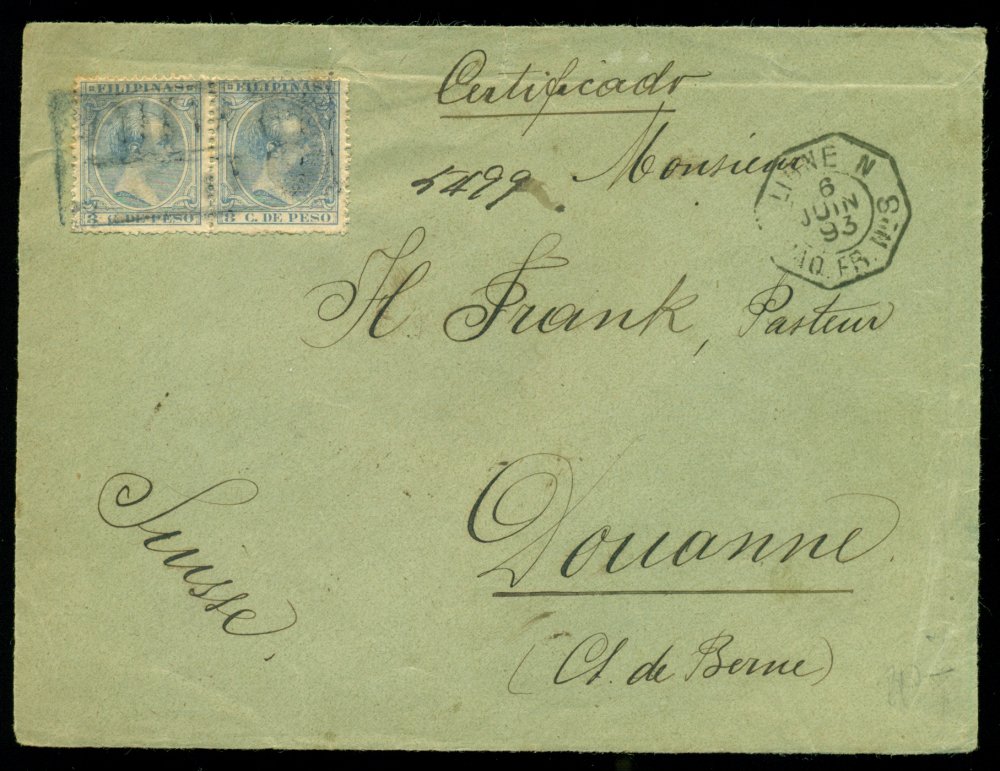 FILIPINAS FILIPINAS
8 C. DE PESO 8 C. DE PESO
Certificado
5499
Monsieur
LIGNE N
6
JUIN
93
PAQ. FR. Nº 8
H Frank, Pasteur
Douanne.
(Ct. de Berne)
Suisse,